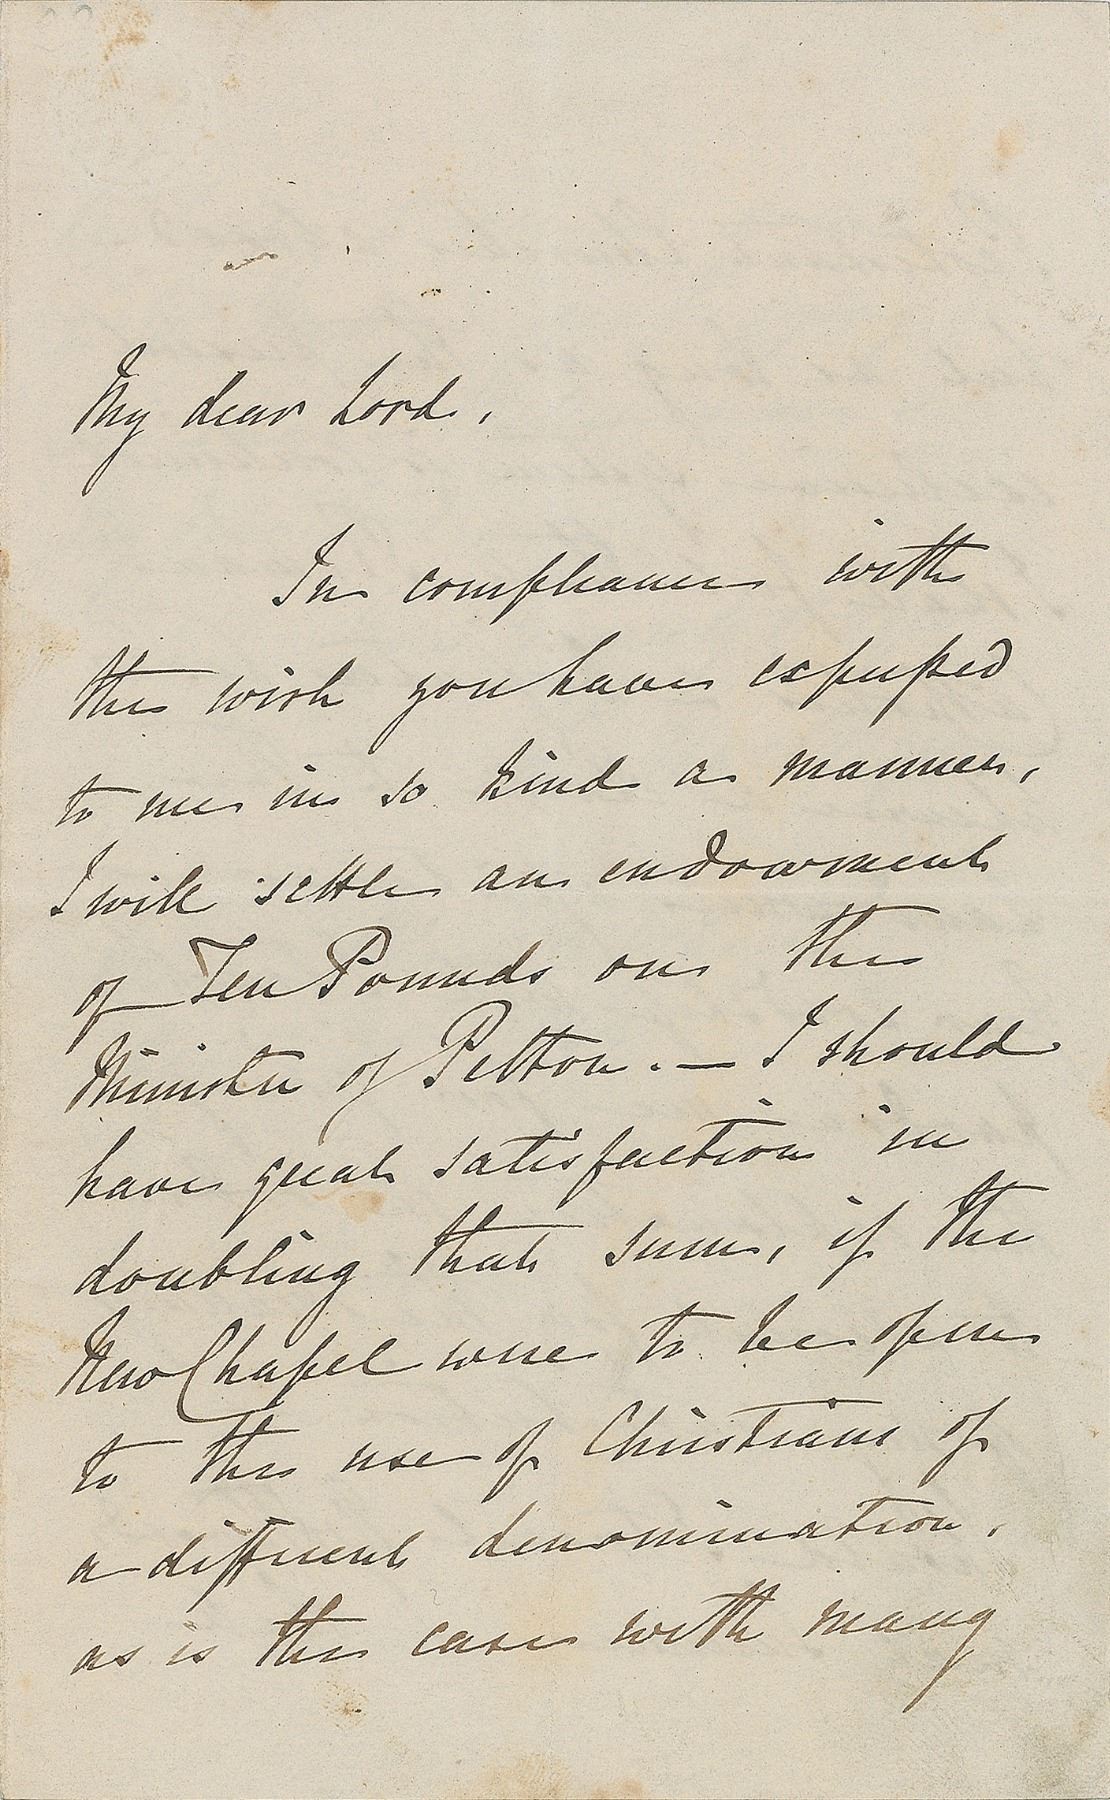 My dear Lord,
In compliance with
the wish you have expressed
to me in so kind a manner,
I will settle an endowment
of Ten Pounds on the
Minister of Pelton. — I should
have great satisfaction in
doubling that sum, if the
New Chapel were to be open
to the use of Christians of
a different denomination,
as is the case with many